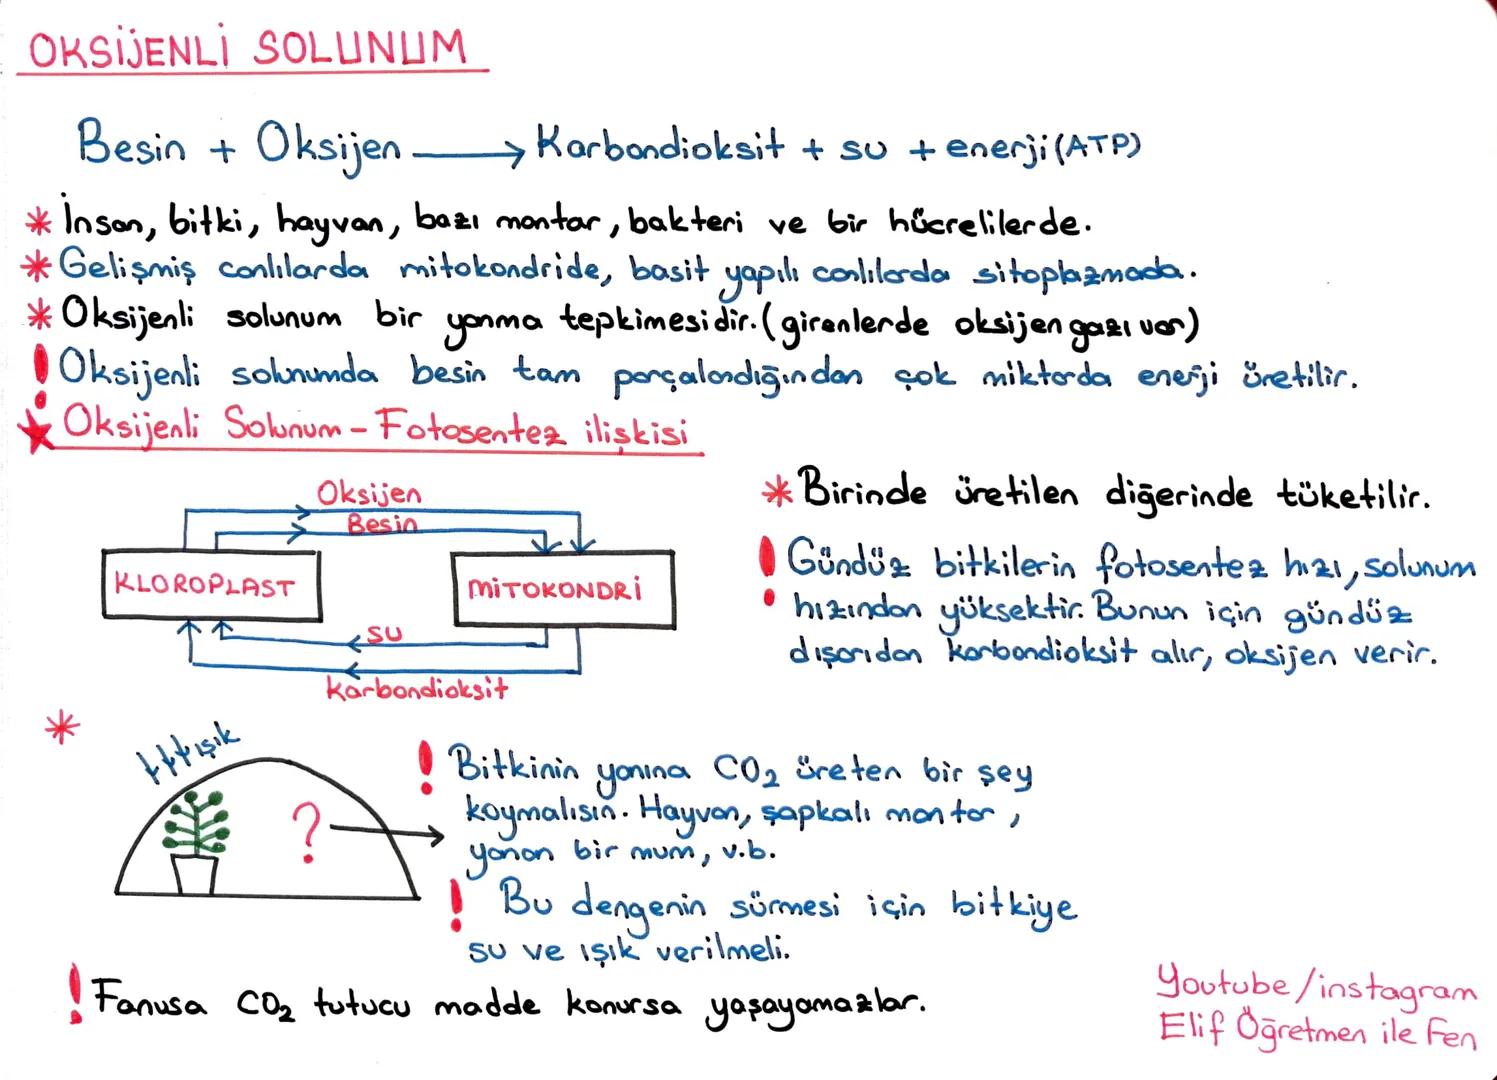 OKSİJENLİ SOLUNUM
Besin + Oksijen → Karbondioksit + su + enerji (ATP)
* İnsan, bitki, hayvan, bazı mantar, bakteri ve bir hücrelilerde.
* Gelişmiş canlılarda mitokondride, basit yapılı canlılarda sitoplazmada.
* Oksijenli solunum bir yanma tepkimesidir. (girenlerde oksijen gazı var)
! Oksijenli solunumda besin tam parçalandığından çok miktarda enerji üretilir.
★ Oksijenli Solunum - Fotosentez ilişkisi
Oksijen
Besin
KLOROPLAST
MİTOKONDRİ
su
karbondioksit
* Birinde üretilen diğerinde tüketilir.
! Gündüz bitkilerin fotosentez hızı, solunum
hızından yüksektir. Bunun için gündüz
dışarıdan karbondioksit alır, oksijen verir.
*
ışık
?
! Bitkinin yanına CO₂ üreten bir şey
koymalısın. Hayvan, şapkalı mantar,
yanan bir mum, v.b.
! Bu dengenin sürmesi için bitkiye
su ve ışık verilmeli.
! Fanusa CO₂ tutucu madde konursa yaşayamazlar.
Youtube/instagram
Elif Öğretmen ile Fen